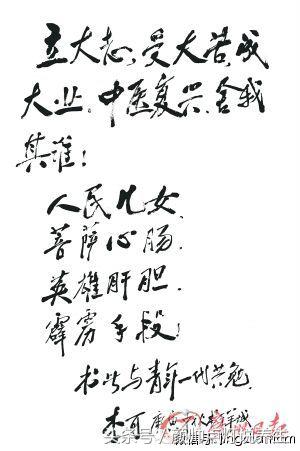 立大志、受大苦、成
大业。中医复兴、舍我
其谁！
人民儿女、
菩萨心肠、
英雄肝胆、
霹雳手段！
书此与青年一代共勉、
李可
头条号
jingluren.com